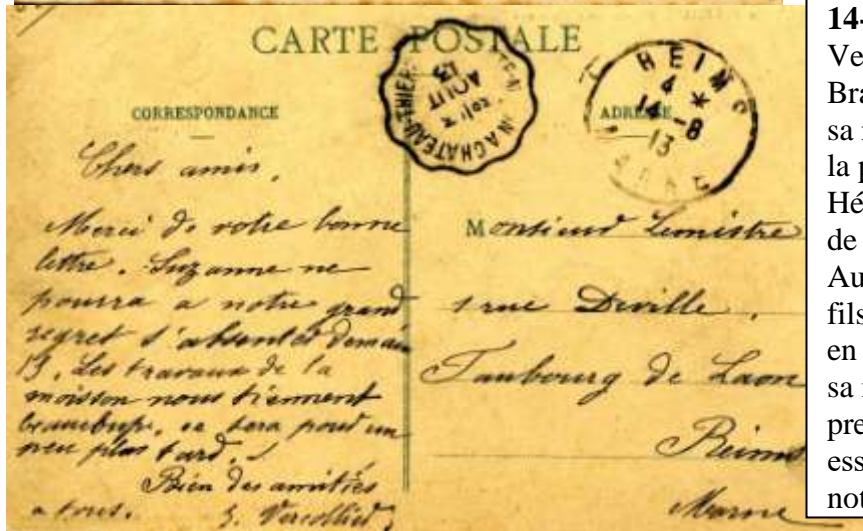 CARTE POSTALE
CORRESPONDANCE
ADRESSE
REIMS
4 *
14-8
13
MARNE
CHATEAU-THIER
AOUT
13
Chers amis,
Merci de votre bonne
lettre. Suzanne ne
pourra a notre grand
regret s'absenter demain
13. Les travaux de la
moisson nous tiennent
ce sera pour un
peu plus tard.
Bien des amitiés
a tous.
Monsieur Lemistre
1 rue Deville,
Faubourg de Laon
Reims
Marne
14-
Ve
Bra
sa
la p
Hé
de
Au
fils
en
sa
pre
ess
not